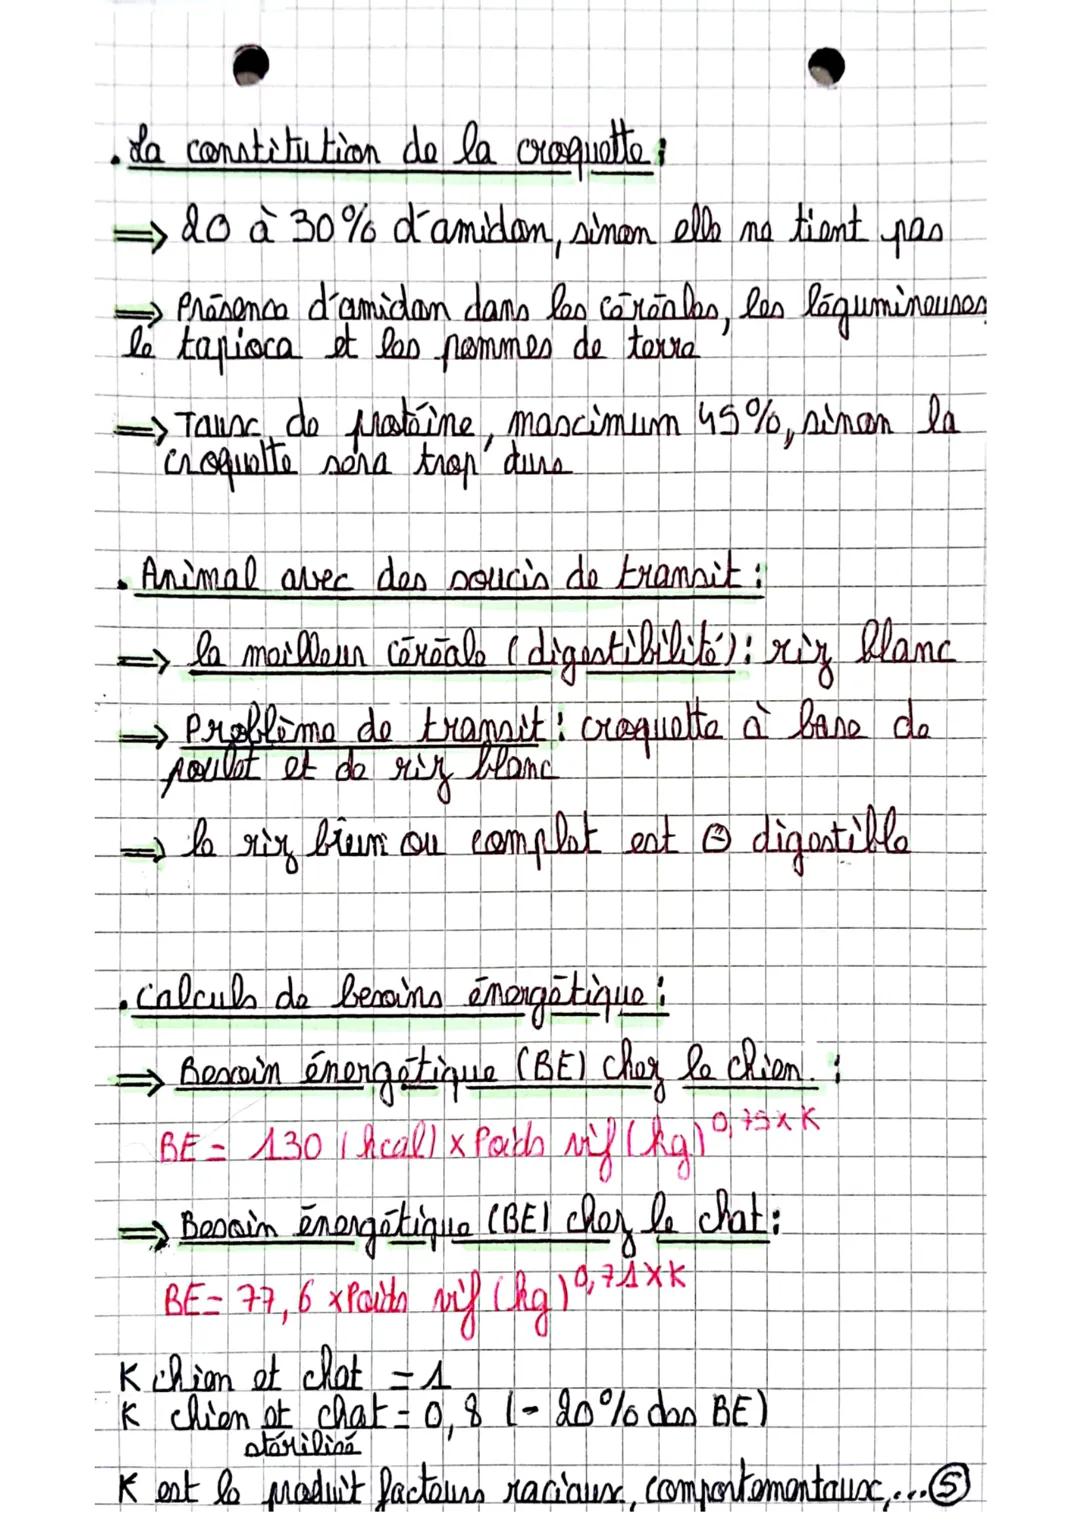 . La constitution de la croquette :
⇒ 20 à 30% d'amidon, sinon elle ne tient pas
⇒ Présence d'amidon dans les céréales, les légumineuses
le tapioca et les pommes de terre
⇒ Taux de protéine, maximum 45%, sinon la
croquette sera trop dure
. Animal avec des soucis de transit :
⇒ la meilleur céréale (digestibilité) : riz blanc
⇒ Problème de transit : croquette à base de
poulet et de riz blanc
⇒ le riz brun ou complet est ⊖ digestible
. Calculs de besoins énergétique :
⇒ Besoin énergétique (BE) chez le chien :
BE = 130 (kcal) x Poids vif (kg)^0,75 x K
⇒ Besoin énergétique (BE) chez le chat :
BE = 77,6 x Poids vif (kg)^0,71 x K
K chien et chat = 1
K chien et chat = 0,8 (- 20% des BE)
stérilisé
K est le produit facteurs raciaux, comportementaux,... ⑤